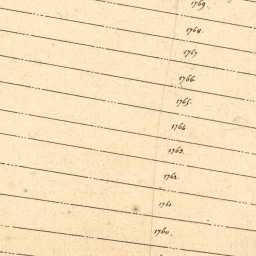 1769.
1768.
1767
1766
1765.
1764
1763.
1762
1761
1760.